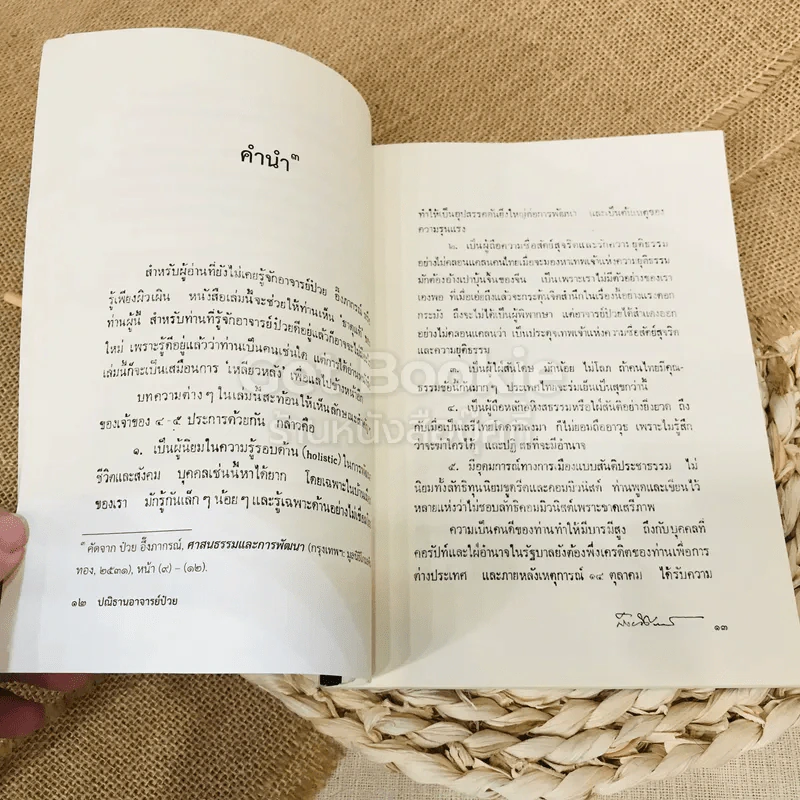 คำนำ๓
สำหรับผู้อ่านที่ยังไม่เคยรู้จักอาจารย์ป๋วย อึ๊งภากรณ์
รู้เพียงผิวเผิน หนังสือเล่มนี้จะช่วยให้ท่านเห็น
ท่านผู้นี้ สำหรับท่านที่รู้จักอาจารย์ป๋วยดีอยู่แล้วก็อาจจะไม่
ใหม่ เพราะรู้ดีอยู่แล้วว่าท่านเป็นคนเช่นใด แต่การได้อ่าน
เล่มนี้ก็จะเป็นเสมือนการ "เหลียวหลัง" เพื่อแลไปข้างหน้า
บทความต่างๆ ในเล่มนี้สะท้อนให้เห็นลักษณะ
ของเจ้าของ ๔-๕ ประการด้วยกัน กล่าวคือ
๑. เป็นผู้นิยมในความรู้รอบด้าน (holistic) ในการ
ชีวิตและสังคม บุคคลเช่นนี้หาได้ยาก โดยเฉพาะใน
ของเรา มักรู้กันเล็กๆ น้อยๆ และรู้เฉพาะด้านอย่างไม่
๓ คัดจาก ป๋วย อึ๊งภากรณ์, ศาสนธรรมและการพัฒนา (กรุงเทพฯ: มูลนิธิ
ทอง, ๒๕๓๑), หน้า (๙) – (๑๒).
๑๒ ปณิธานอาจารย์ป๋วย
ทำให้เป็นอุปสรรคอันยิ่งใหญ่ต่อการพัฒนา และเป็นต้นเหตุของ
ความรุนแรง
๒. เป็นผู้ถือความซื่อสัตย์สุจริตและรักความยุติธรรม
อย่างไม่คลอนแคลนคนไทยเมื่อจะมองหาเทพเจ้าแห่งความยุติธรรม
มักต้องอ้างเปาบุ้นจิ้นของจีน เป็นเพราะเราไม่มีตัวอย่างของเรา
เองพอ ที่เมื่อเอ่ยถึงแล้วจะกระตุ้นจิตสำนึกในเรื่องนี้อย่างแรงดอก
กระมัง ถึงจะไม่ได้เป็นผู้พิพากษา แต่อาจารย์ป๋วยได้สำแดงออก
อย่างไม่คลอนแคลนว่า เป็นประดุจเทพเจ้าแห่งความซื่อสัตย์สุจริต
และความยุติธรรม
๓. เป็นผู้ใฝ่สันโดษ มักน้อย ไม่โลภ ถ้าคนไทยมีคุณ-
ธรรมข้อนี้กันมากๆ ประเทศไทยจะร่มเย็นเป็นสุขกว่านี้
๔. เป็นผู้ถือหลักอหิงสธรรมหรือใฝ่สันติอย่างยิ่งยวด ถึง
กับเมื่อเป็นเสรีไทยโดดร่มลงมา ก็ไม่ยอมถืออาวุธ เพราะไม่รู้สึก
ว่าจะฆ่าใครได้ และปฏิเสธที่จะมีอำนาจ
๕. มีอุดมการณ์ทางการเมืองแบบสันติประชาธรรม ไม่
นิยมทั้งลัทธิทุนนิยมขูดรีดและคอมมิวนิสต์ ท่านพูดและเขียนไว้
หลายแห่งว่าไม่ชอบลัทธิคอมมิวนิสต์เพราะขาดเสรีภาพ
ความเป็นคนดีของท่านทำให้มีบารมีสูง ถึงกับบุคคลที่
คอรัปท์และใฝ่อำนาจในรัฐบาลยังต้องพึ่งเครดิตของท่านเพื่อการ
ต่างประเทศ และภายหลังเหตุการณ์ ๑๔ ตุลาคม ได้รับความ
๑๓